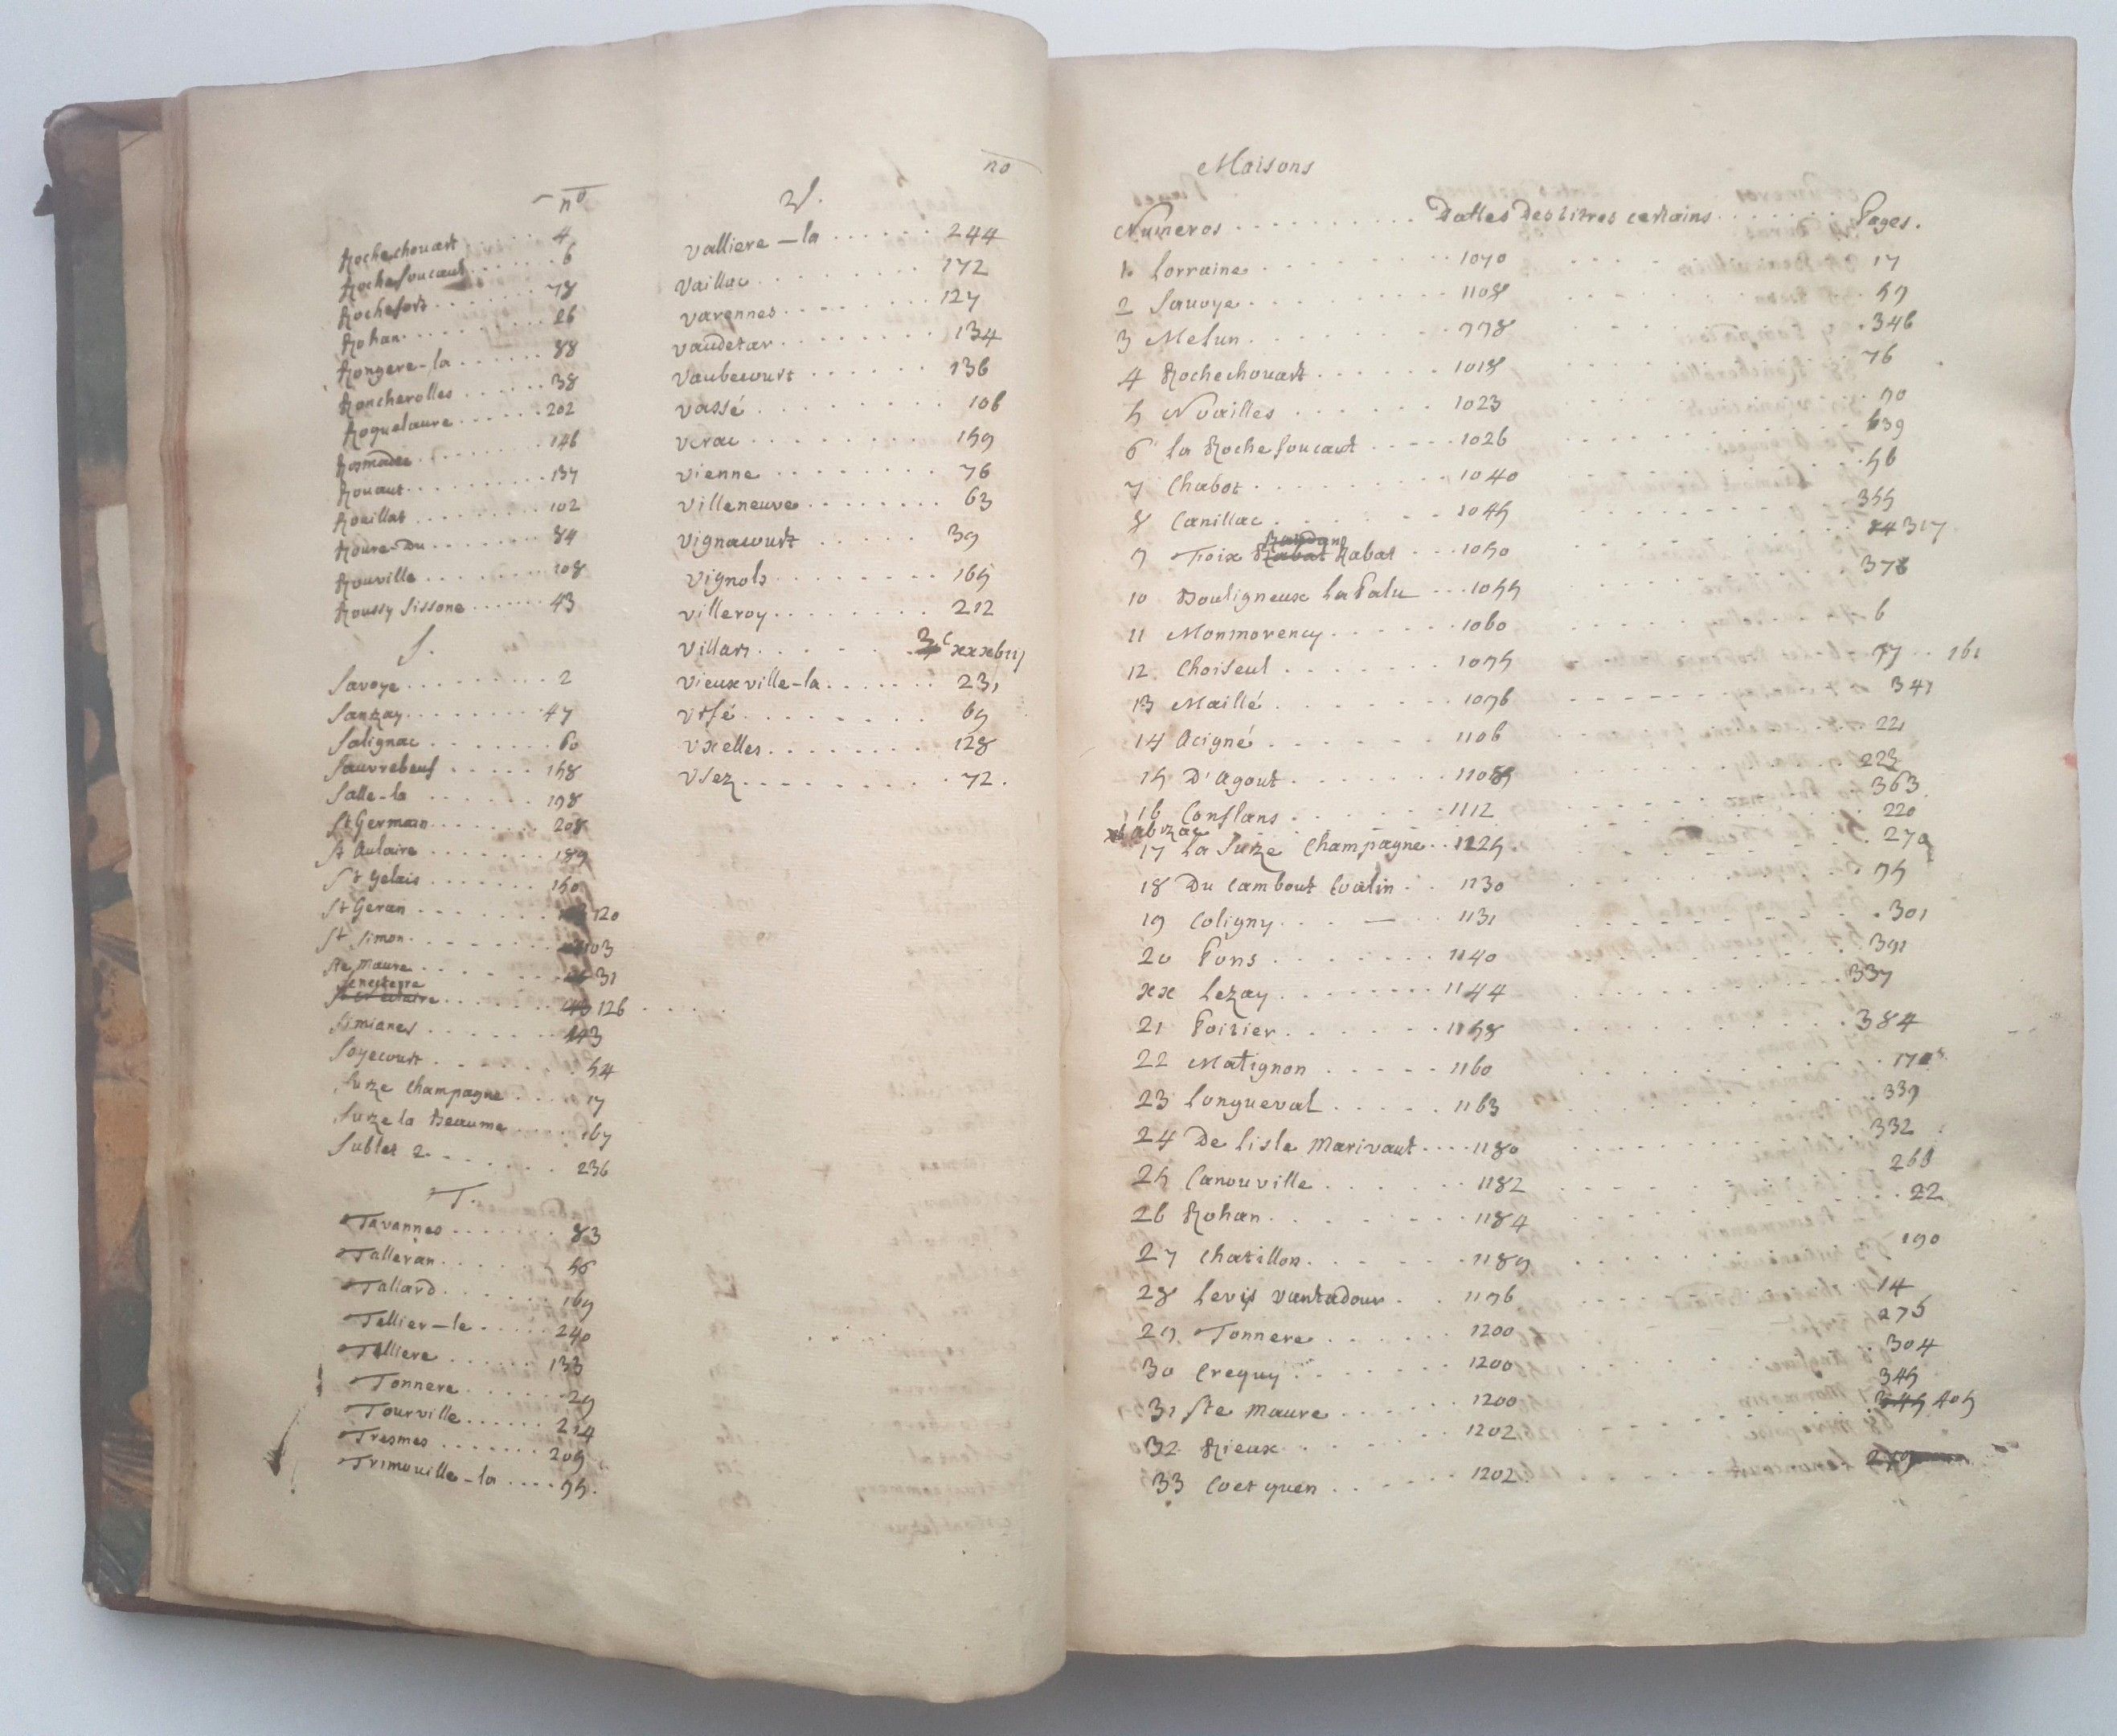 no
Rochechouart ....... 4
Rochefoucaut ....... 6
Rochefort ....... 98
Rohan ....... 26
Rongere-la ...... 88
Roncherolles ..... 38
Roquelaure ..... 202
Rosmadec ....... 146
Rouaut .......... 137
Rouillat .......... 102
Roure-Du ....... 84
Rouville ....... 108
Roussy Sissone ...... 43
S.
Savoye ......... 2
Sanzay ......... 47
Salignac ....... 60
Sauvrebeuf ..... 158
Salle-la ...... 198
St Germain ....... 208
St Aulaire ....... 189
St Gelais ....... 150
St Geran ....... 120
St Simon ....... 103
Ste Maure ....... 31
Senecterre
126
Simianes ...... 143
Soyecourt ....... 54
Suze Champagne .... 17
Suze la Beaume .... 167
Sublet 2 ....... 236
T.
Tavannes ....... 83
Talleran ...... 56
Tallard ...... 169
Tellier-le ..... 240
Tilliere ...... 133
Tonnere ....... 29
Tourville ...... 214
Tresmes ....... 209
Trimouille-la .... 95.
no
V.
Valliere-la ...... 244
Vaillac ......... 172
Varennes ........ 127
Vaudetar ........ 134
Vaubecourt ...... 136
Vassé ........ 106
Verac ........ 159
Vienne ........ 76
Villeneuve ........ 63
Vignacourt ..... 39
Vignols ........ 165
Villeroy ........ 212
Villars ...... 3c xxxbiij
Vieuxville-la ....... 231
Urfé ........ 69
Uxelles ........ 128
Usez ........ 72.
Maisons
Numeros ......... Dattes Des titres certains ....... Pages.
1. Lorraine ........ 1070 ..... 17
2 Savoye ......... 1108 ..... 59
3 Melun ....... 998 ..... 346
4 Rochechouart ...... 1018 ..... 76
5 Noailles ...... 1023 ..... 90
6 La Rochefoucaut ..... 1026 ..... 639
7 Chabot ......... 1040 ..... 56
8 Canillac ....... 1045 ..... 355
9 Foix Rabat ... 1050 ..... 317
10 Bouligneux La Palu ... 1055 ..... 378
11 Monmorency ...... 1060 ..... 6
12. Choiseul ....... 1075 ..... 97 .. 161
13 Maillé ....... 1076 ..... 341
14 Acigné ...... 1106 ..... 221
15 D'Agout ....... 1108 ..... 223
16 Conflans ...... 1112 ..... 363
Abzac ..... 220
17 La Suze Champagne .. 1125 ..... 270
18 Du Cambout Coalin .. 1130 ..... 95
19 Coligny ... — .. 1131 ..... 301
20 Pons ........ 1140 ..... 391
xx Lezay ........ 1144 ..... 337
21 Poirier ...... 1158 ..... 384
22 Matignon ..... 1160 ..... 170
23 Longueval ..... 1163 ..... 339
24 De Lisle Marivaut .... 1180 ..... 332
25 Canouville ...... 1182 ..... 268
26 Rohan ........ 1184 ..... 22
27 Chatillon ....... 1189 ..... 190
28 Levis Vantadour .. 1196 ..... 14
29. Tonnere ....... 1200 ..... 275
30 Crequy ...... 1200 ..... 304
31 Ste Maure ...... 1200 ..... 345
32 Rieux ....... 1202 ..... 405
33 Coetquen ...... 1202